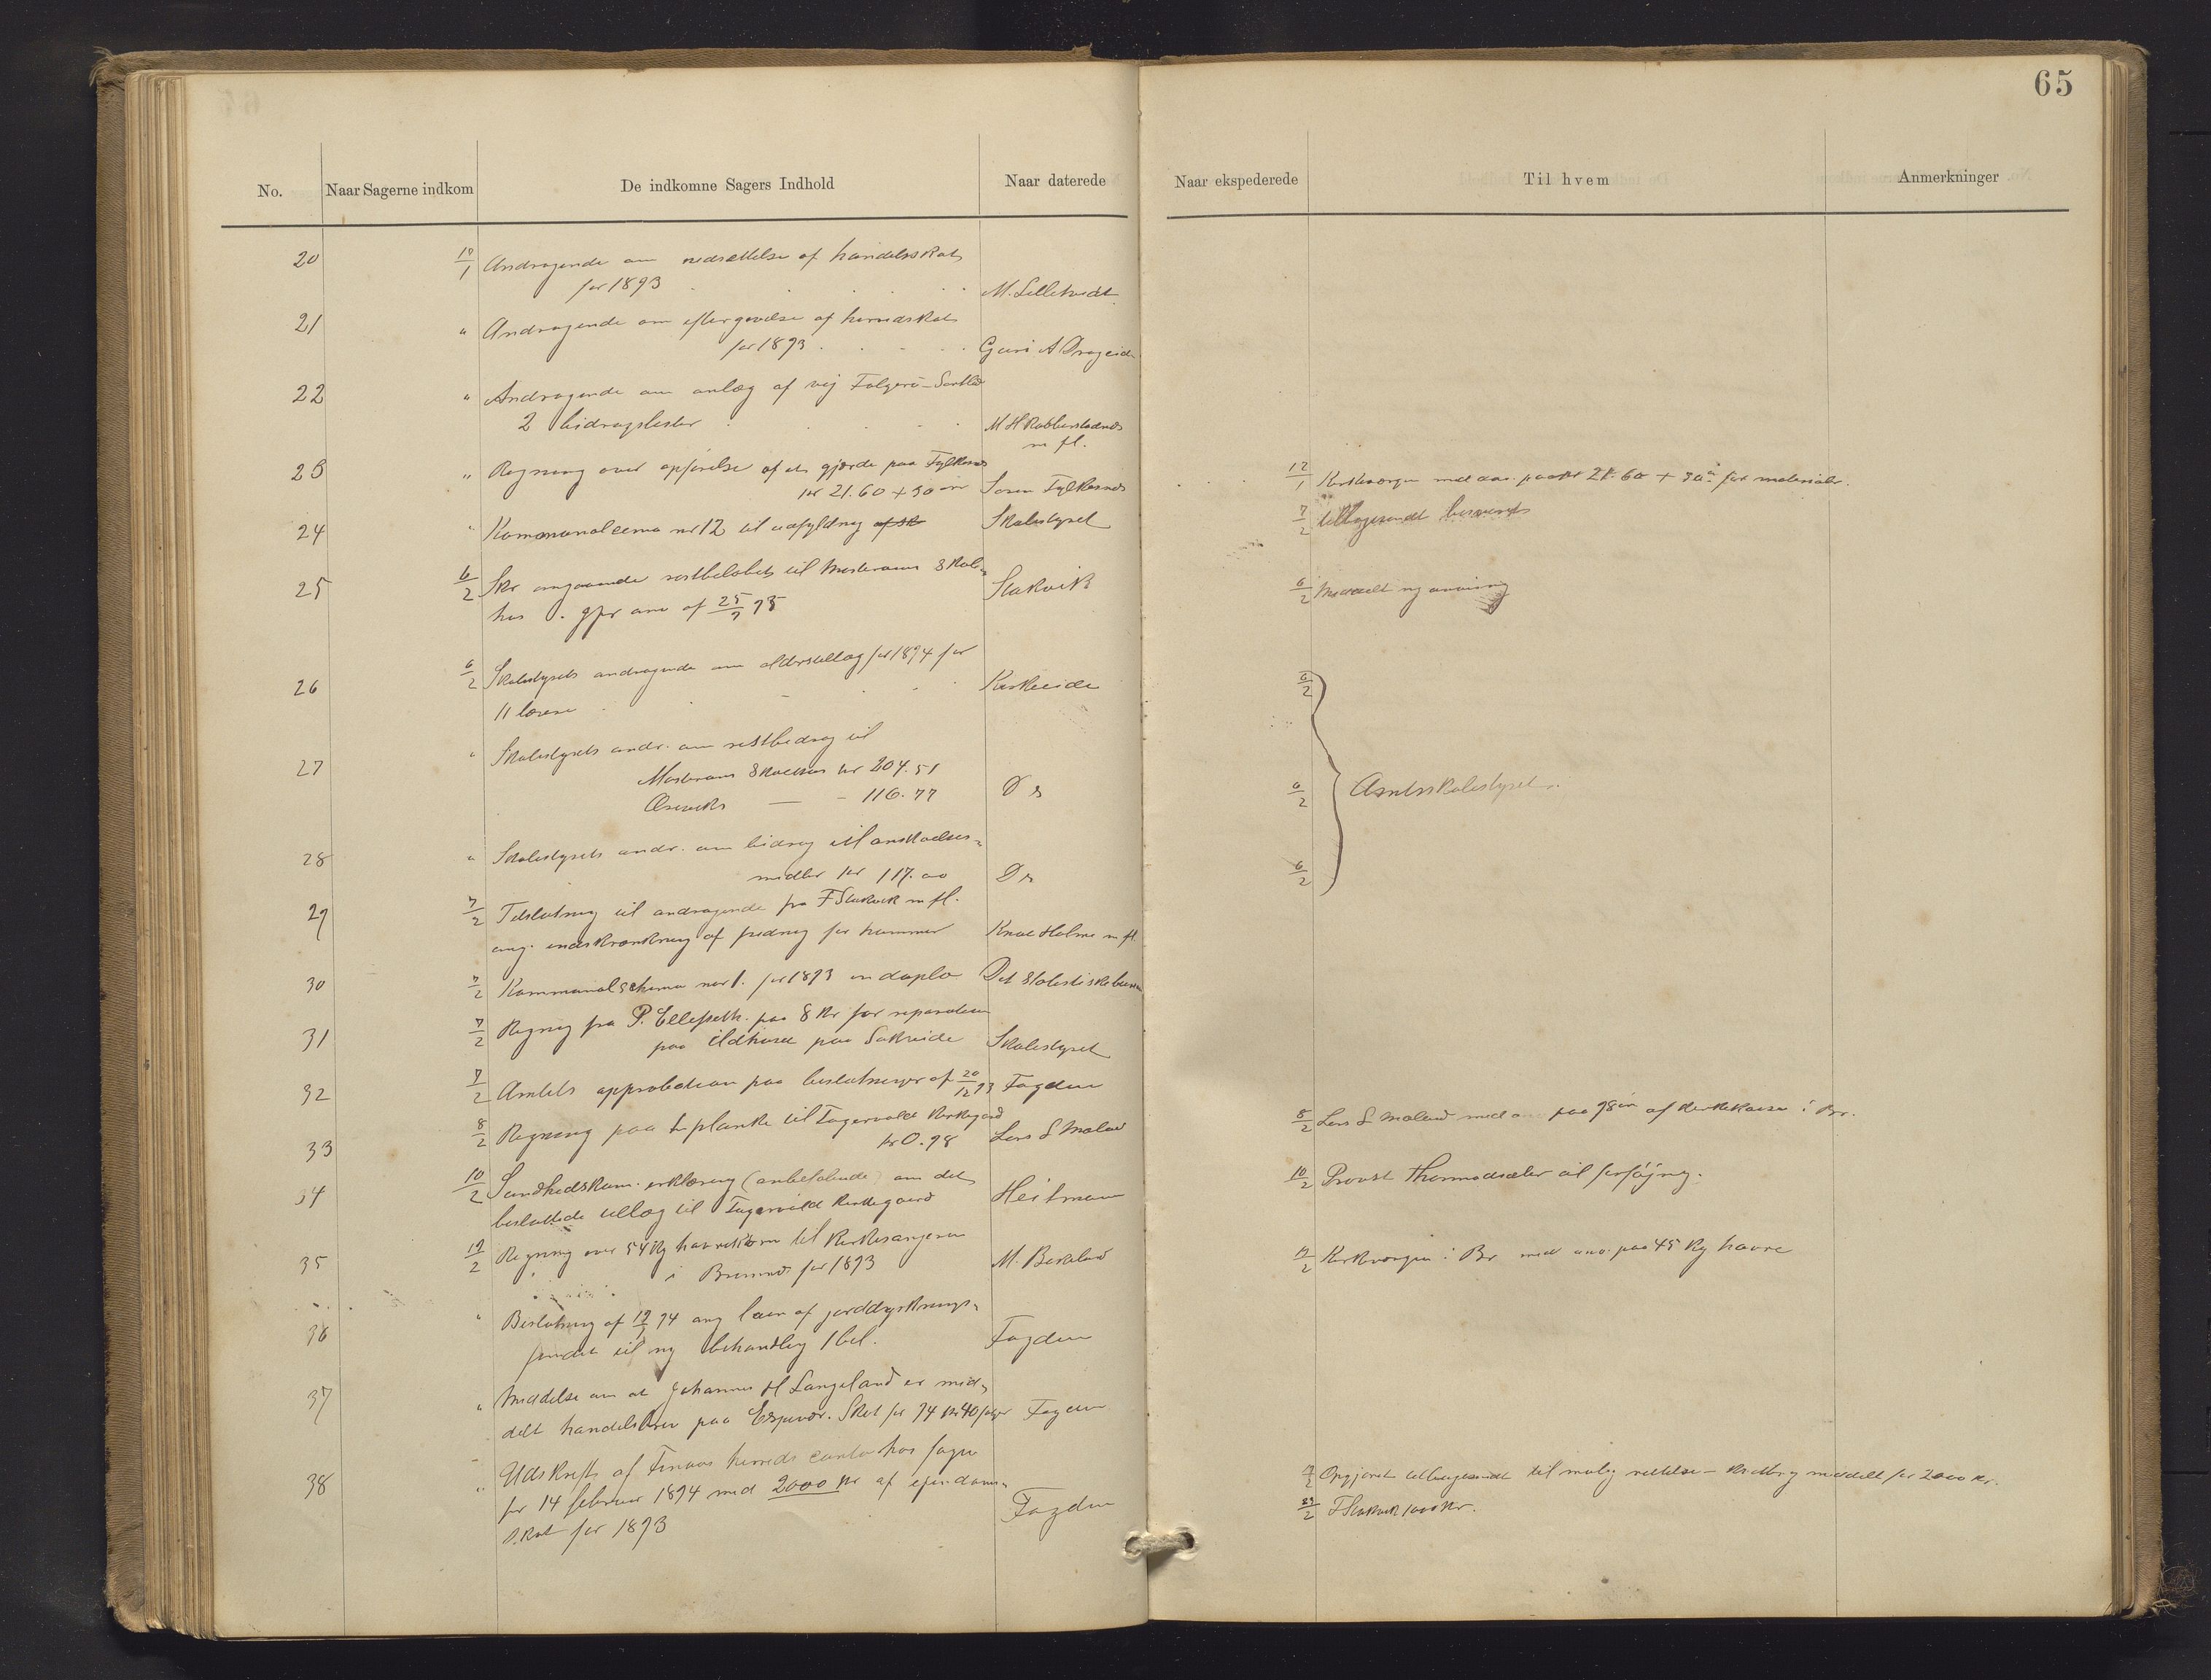 65
No. Naar Sagerne indkom De indkomne Sagers Indhold Naar daterede Naar ekspederede Til hvem Anmerkninger
20 10/1 Andragende om nedsættelse af handelsskat
for 1893 M. Lillehvidt
21 " Andragende om eftergivelse af herredskat
for 1893 Guri A Drageide
22 " Andragende om anlæg af vej
2 bidragslister M H Rabbersvadnes
m fl.
23 " Regning over opførelse af et gjærde paa Fylkesnes
kr 21.60 + 30 øre Soren Fylkesnes 12/1 Kirkevergen med anv. paa kr 21.60 + 30 ø for materialer.
24 " Kommunalcema nr 12 til udfyldning Skolestyret 7/2 tilbagesendt besvaret
25 6/2 Skr angaaende restbeløbet til Mosterøens Skole
hus Slakvik 6/2 Meddelt ny anvisning
26 6/2 Skolestyrets andragende om alderstillæg for 1894 for
11 lærere Kirkeeide 6/2
27 " Skolestyrets andr. om restbidrag til
Mosterøens Skolehus kr 204.51
— - 116.77 Do 6/2 Amtsskolestyret.
28 " Skolestyrets andr. om bidrag til anskaffelses-
midler kr 117.00 Do 6/2
29 7/2 Tilslutning til andragende fra F Slakvik m fl.
ang. indskrænkning af fredning for hummer Knut Holme m fl
30 7/2 Kommunalschema nr 1. for 1893 in duplo Det Statistiske bureau
31 7/2 Regning fra P. Ellefseth. paa 8 kr for reparation
paa ildhuset paa Sakseide Skolestyret
32 7/2 Amtets approbation paa beslutninger af 20/12 93 Fogden
33 8/2 Regning paa 1 planke til Fagervold Kirkegaard
kr 0.98 Lars S Maland 8/2 Lars S Maland med paa 98 øre af kirkekassen i Br.
34 10/2 Sundhedskom. erklæring (anbefalende) om det
besluttede tillæg til Fagervold Kirkegaard Heitmann 10/2 Provst Thormodsæter til forføjning.
35 12/2 Regning over 54 kg havrekorn til Kirkesangeren
i Bremnes for 1893 M. Børøland 12/2 Kirkevergen i Br med anv. paa 45 kg havre
36 " Beslutning af 12/1 94 ang laan af jorddyrknings-
fondet til ny behandling 1 bil. Fogden
37 " Meddelse om at Johannes H Langeland er med-
delt handelsbrev paa Espevær. Skat for 94 kr 40 Fogden
38 " Udskrift af Finaas herreds conto hos fogden
for 14 februar 1894 med 2000 kr af ejendoms-
skat for 1893 Fogden Opgjøret tilbagesendt til mulig rettelse - kvittering meddelt for 2000 kr.
23/2 F Slakvik 1000 kr.